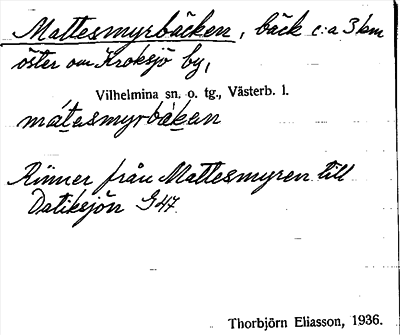 Mattesmyrbäcken, bäck c:a 3 km
öster om Kroksjö by,
Vilhelmina sn. o. tg., Västerb. l.
mátasmyrbäkan
Rinner från Mattesmyren till
Datiksjön G47.
Thorbjörn Eliasson, 1936.